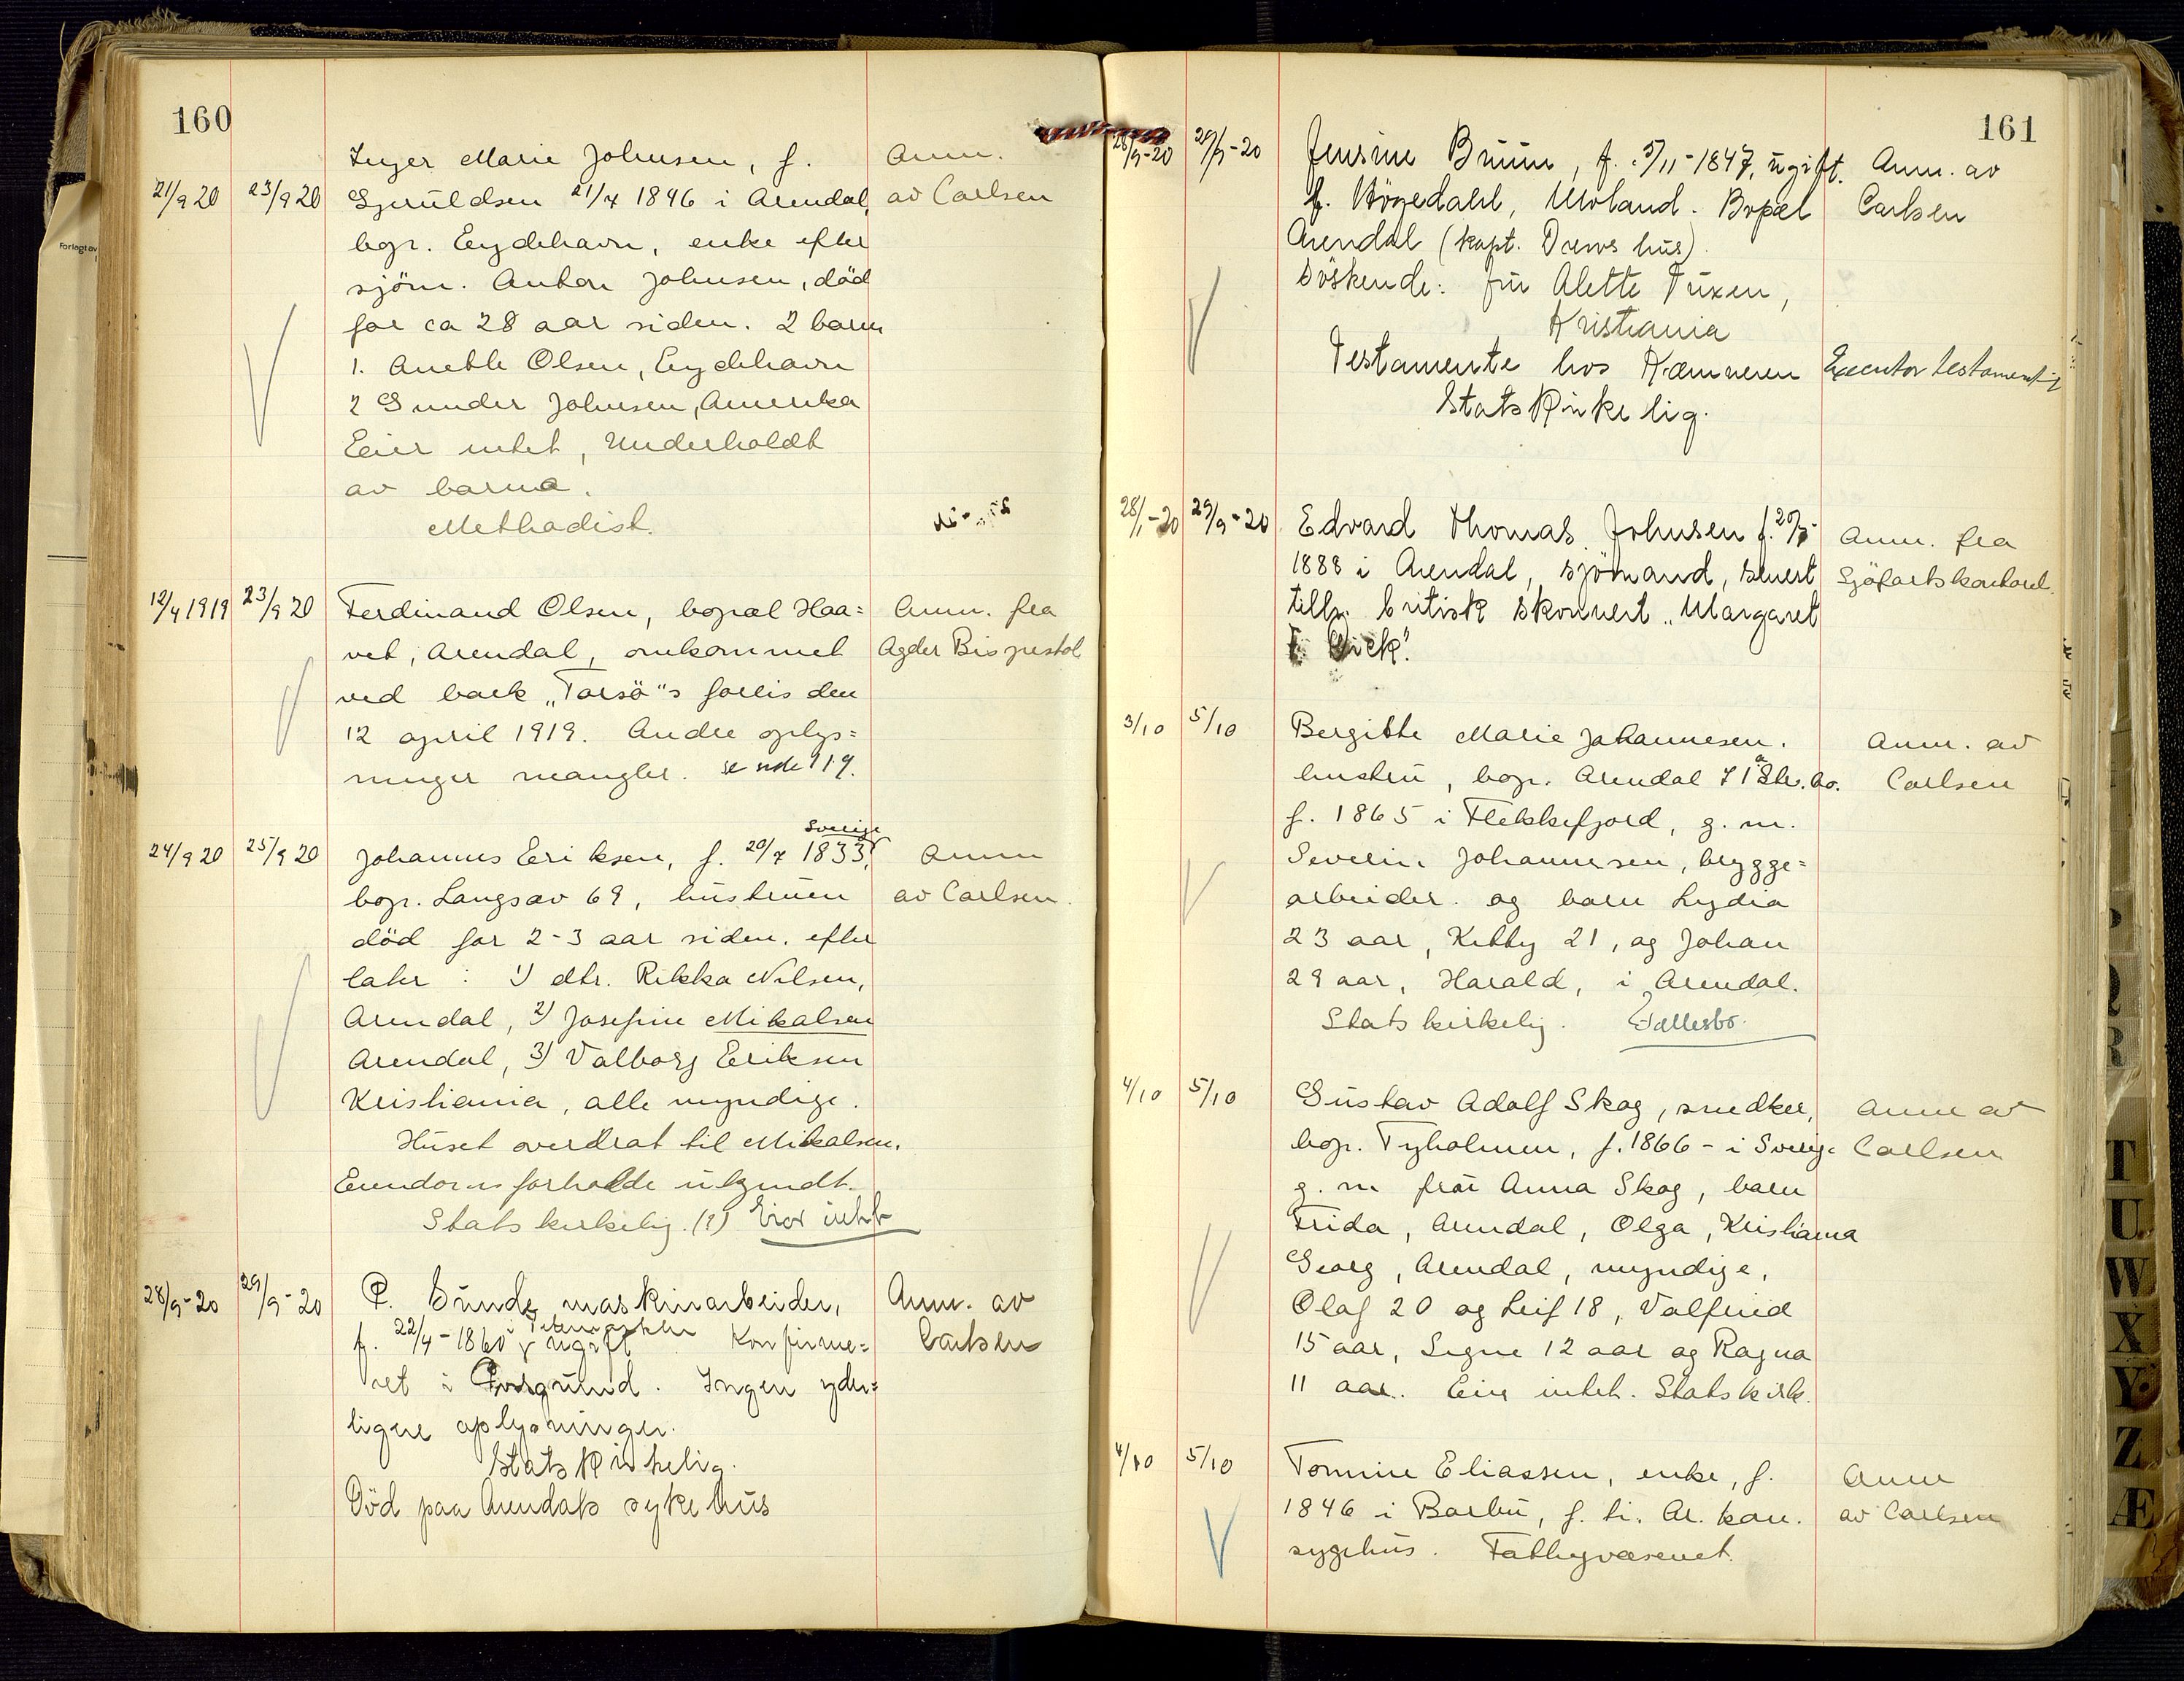 160
Inger Marie Johnsen, f. Anm.
21/9 20 23/9 20 Gjeruldsen 21/7 1846 i Arendal, av Carlsen
bop. Eydehavn, enke efter
sjöm. Anton Johnsen, död
for ca 28 aar siden. 2 barn
1. Anette Olsen, Eydehavn
2 Gunder Johnsen, Amerika
Eier intet, Underholdt
av barna.
Methodist.
12/4 1919 23/9 20 Ferdinand Olsen, bopæl Haa= Anm. fra
vet, Arendal, omkommet Agder Bispestol
ved bark „Torsö"s forlis den
12 april 1919. Andre oplys=
ninger mangler. se side 119.
Sverige
24/9 20 25/9 20 Johannes Eriksen, f. 20/7 1833, Anm
bop. Langsæv 69, hustruen av Carlsen.
död for 2-3 aar siden. efter
later : 1) dtr. Rikka Nilsen,
Arendal, 2) Josefine Mikalsen
Arendal, 3) Valborg Eriksen
Kristiania, alle myndige.
Huset overdrat til Mikalsen.
Eiendomsforholde ukjendt.
Statskirkelig. (?) Eier intet
28/9-20 29/9-20 P. Sunde, maskinarbeider, Anm. av
f. 22/4-1860 i Telemarken ugift. Konfirme= Carlsen
ret i Porsgrund. Ingen yder=
ligere oplysninger.
Statskirkelig.
Död paa Arendals sykehus
161
28/9-20 29/9-20 Jensine Bruun, f. 5/11-1847, ugift. Anm. av
f. Högedahl, Moland. Bopæl Carlsen
Arendal (kapt. Drews hus).
Söskende: fru Alette Tuxen,
Kristiania
Testamente hos Kæmneren Executor testamenti
Statskirkelig.
28/1-20 29/9-20 Edvard Thomas Johnsen f. 20/7- Anm. fra
1888 i Arendal, sjömand, senest Sjöfartskontoret.
tilh. britisk skonnert „Margaret
Dick".
3/10 5/10 Bergitte Marie Johannesen. Anm. av
hustru, bop. Arendal 71a Str. bo. Carlsen
f. 1865 i Flekkefjord, g. m.
Severin Johannesen, brygge=
arbeider. og barn Lydia
23 aar, Kitty 21, og Johan
29 aar, Harald, i Arendal.
Statskirkelig.
4/10 5/10 Gustav Adolf Skog, snedker, Anm av
bop. Tyholmen, f. 1866 - i Sverige Carlsen
g. m fru Anna Skog, barn
Frida, Arendal, Olga, Kristiania
Georg, Arendal, myndige,
Olaf 20 og Leif 18, Valfrid
15 aar, Signe 12 aar og Ragna
11 aar. Eier intet. Statskirk.
4/10 5/10 Tomine Eliassen, enke, f. Anm
1846 i Barbu, f. ti. Ar. kom. av Carlsen
sygehus. Fattigvæsenet.
Forlagt av
P
Q
R
T
U
W
X
Y
Z
Æ